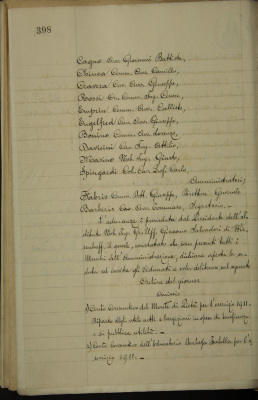 398
Cagno Cav. Giovanni Battista,
Chiesa Comm. Avv. Camillo,
Craveri Cav. Avv. Giuseppe,
Rossi Cav. Comm. Ing.
Emprin Comm. Avv. Callisto,
Engelfred Cav. Avv. Giuseppe,
Bonino Comm. Avv. Lorenzo,
Davicini Cav. Ing. Attilio,
Masino Nob. Ing. Giusto,
Spingardi Col. Cav. Prof. Carlo,
Amministratori,
Fabris Comm. Dott. Giuseppe, Direttore Generale
Barberis Cav. Avv. Tommaso, Segretario.
L'adunanza è presieduta dal Presidente dell'
Nob. Ing. Giacomo Salvadori di
il quale, constatato che sono presenti tutti i
Membri dell'Amministrazione, dichiara aperta la se-
duta ed invita gli Adunati a voler deliberare sul seguente
Ordine del giorno:
Omissis
1) Conto Consuntivo del Monte di Pietà per l'esercizio 1911.
Riparto degli utili netti a erogazioni in opere di beneficenza
e di pubblica utilità. —
2) Conto Consuntivo dell'Educatorio Duchessa Isabella per l'e-
sercizio 1911. —